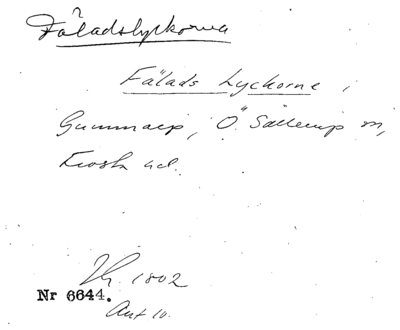 Fäladslyckorna
Fälads Lyckorne i
Gummarp, Ö. Sallerup sn,
Frosta hd.
1802
Nr 6644.
Akt 10.